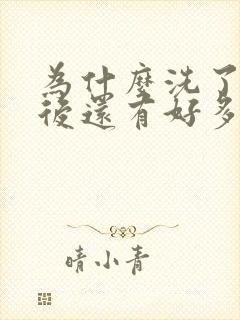 為什麼洗了
後還有好多
晴小青